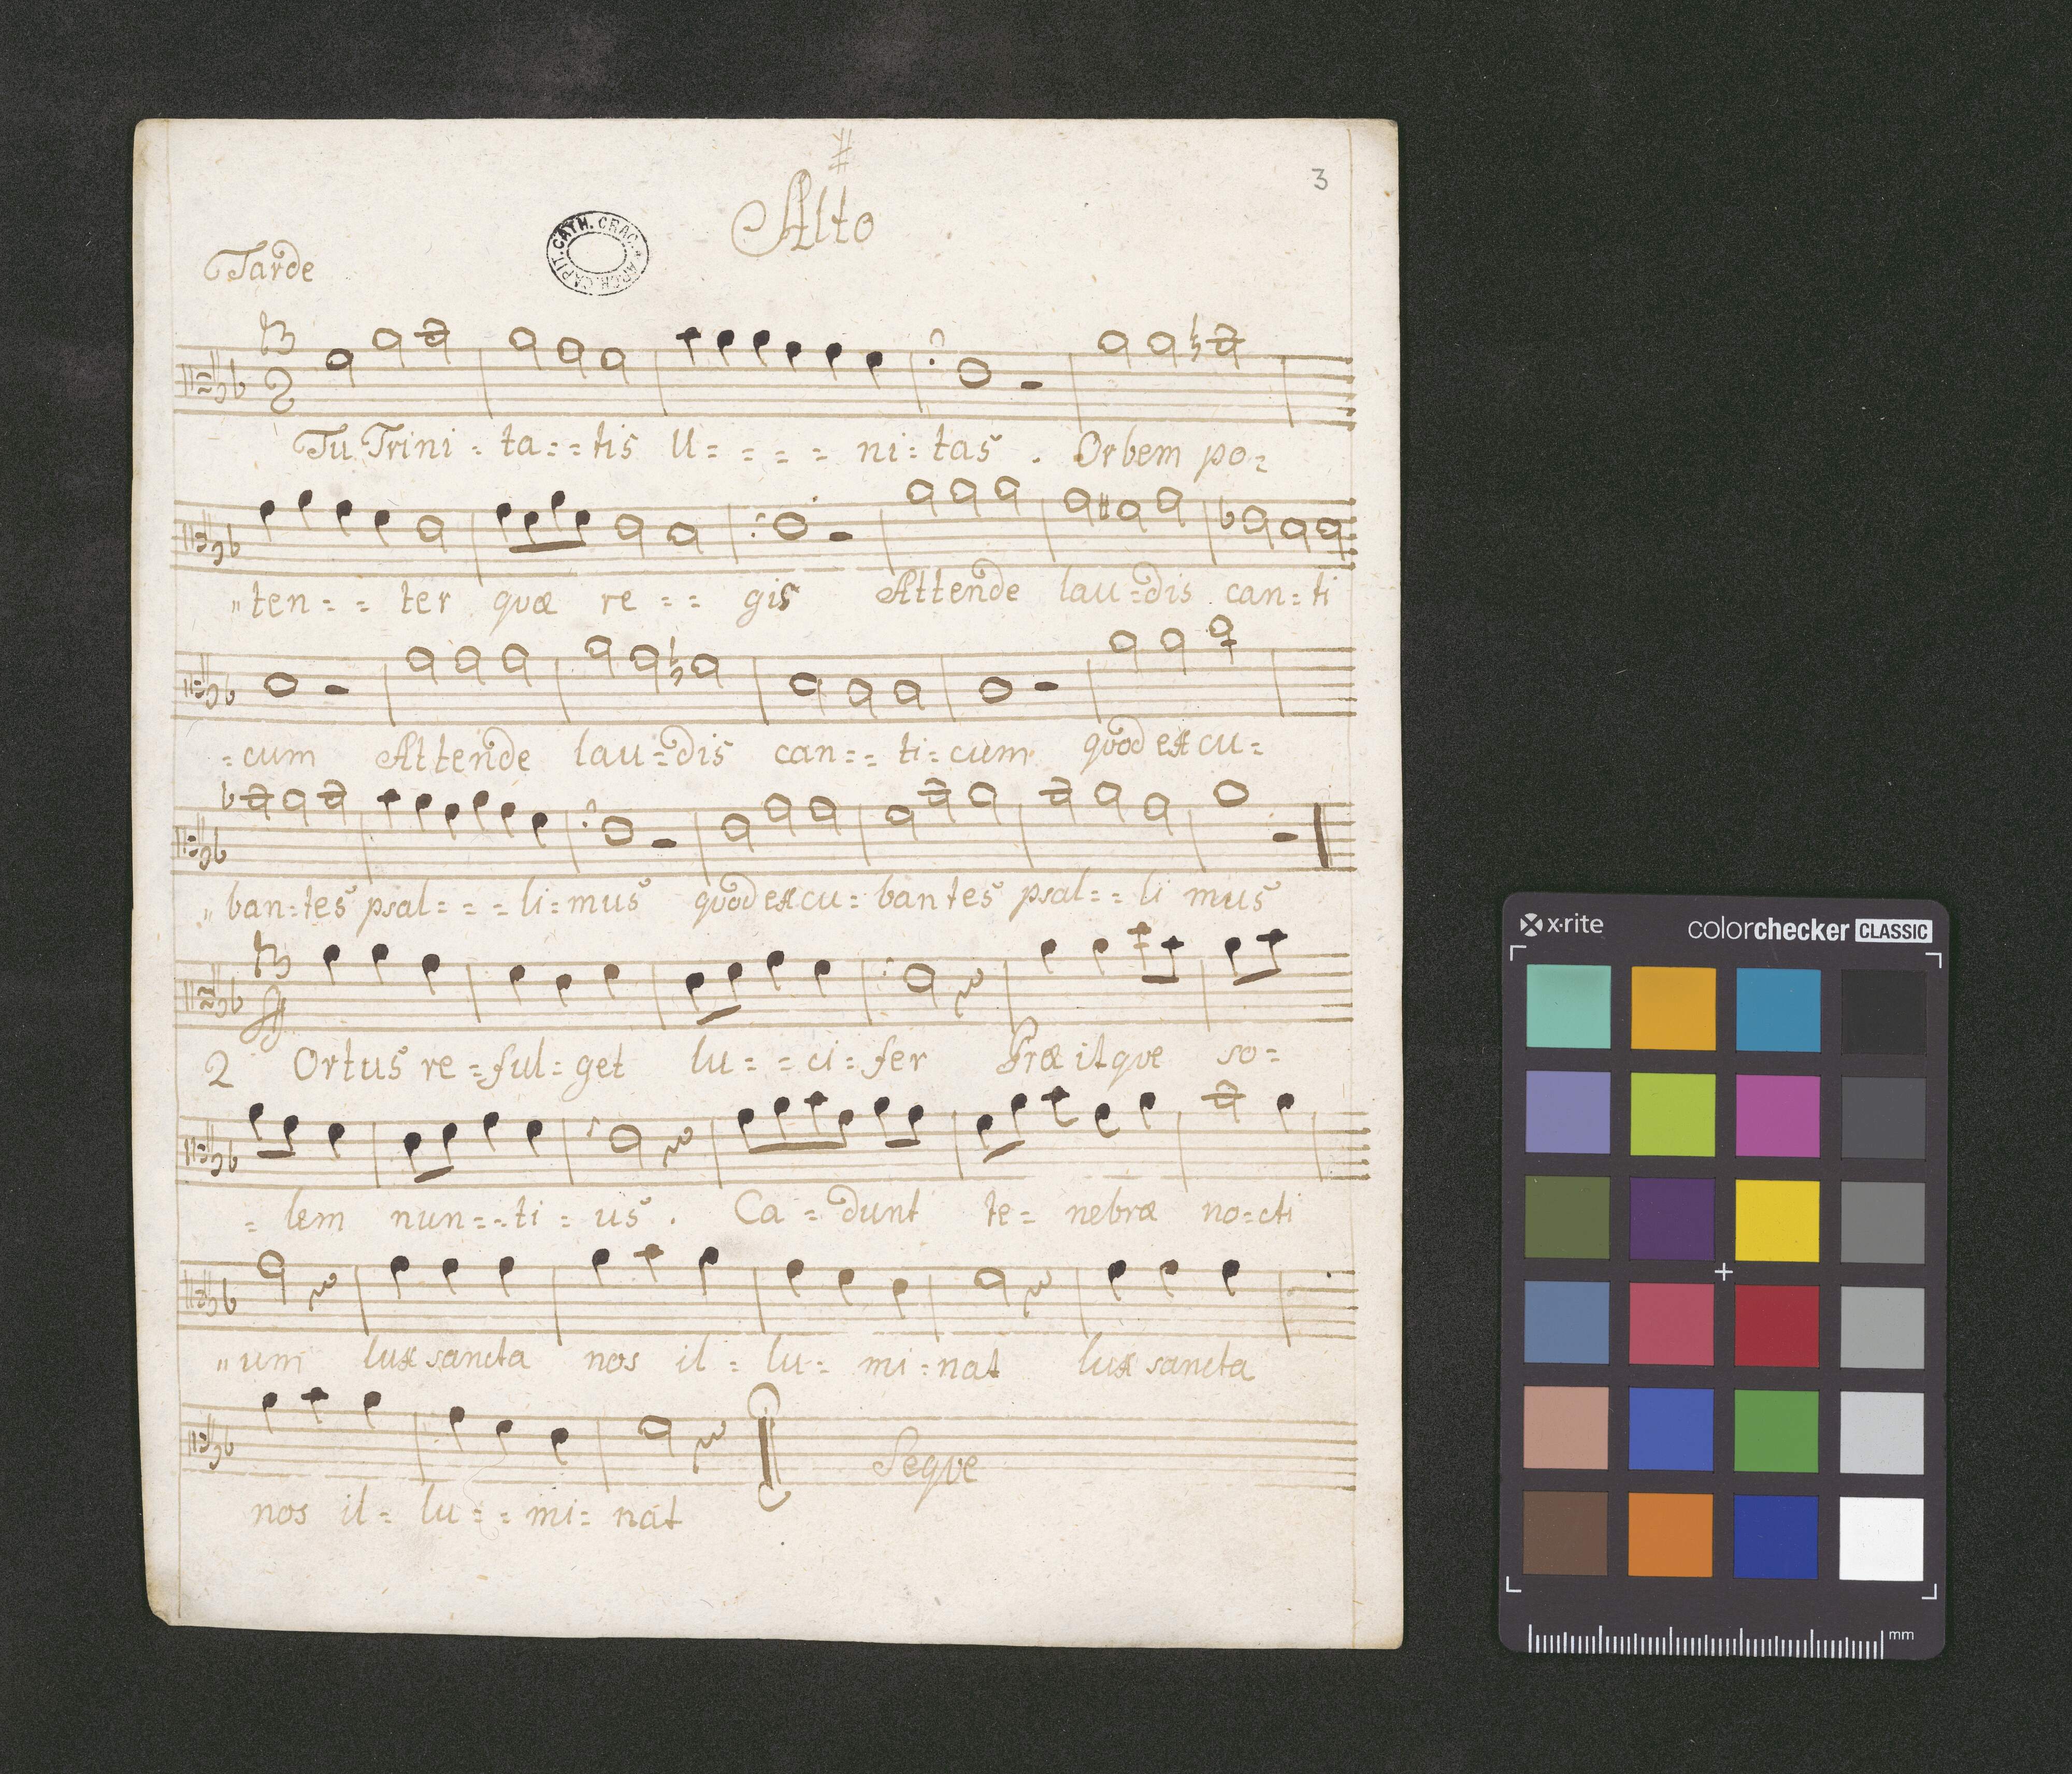 3
Alto
CAPIT. CATH. CRAC. * ARCH.
Tarde
Tu Trini - ta - - tis U - - - - ni - tas . Orbem po -
ten - - ter quæ re - - gis Attende lau - dis can - ti
- cum Attende lau - dis can - - ti - cum quod excu -
ban - tes psal - - - li - mus quod excu - bantes psal - - li mus
2 Ortus re - ful - get lu - - ci - fer Præ itque so -
- lem nun - - ti - us . Ca - dunt te - nebræ no - cti
um lux sancta nos il - lu - mi - nat lux sancta
Seque
nos il - lu - - mi - nat
x·rite colorchecker CLASSIC
mm